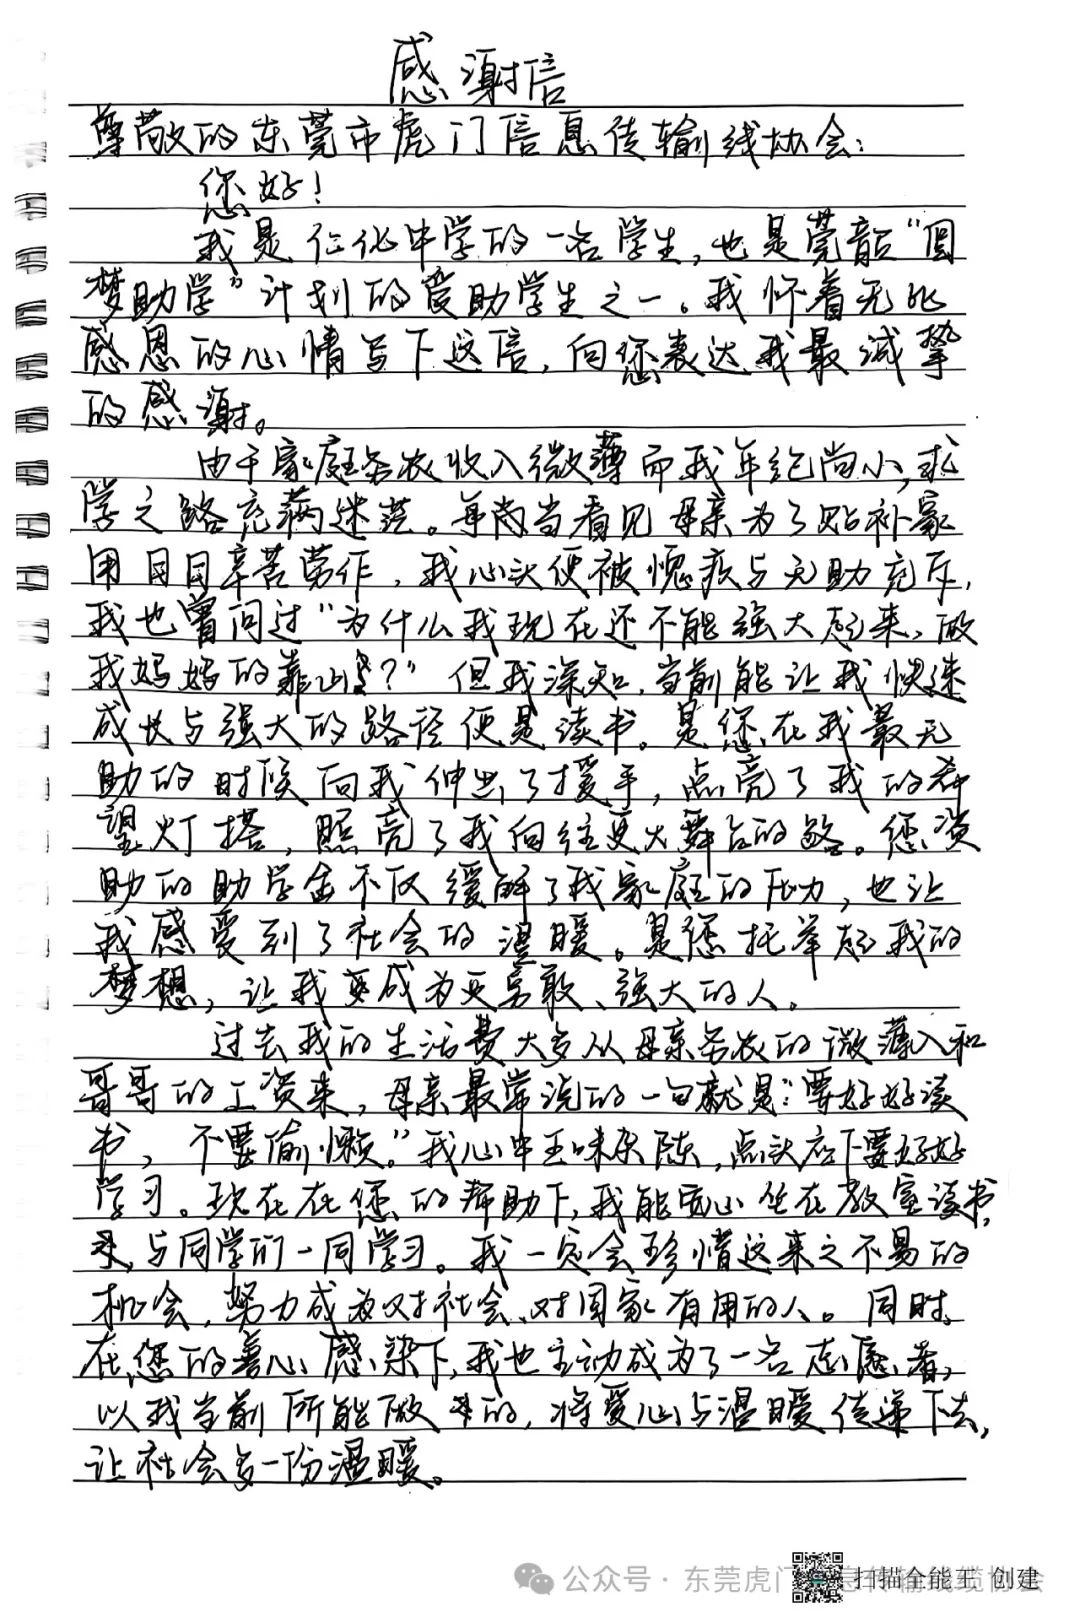 感谢信
尊敬的东莞市虎门信息传输线协会：
您好！
我是仁化中学的一名学生，也是莞韶“圆
梦助学”计划的受助学生之一。我怀着无比
感恩的心情写下这信，向您表达我最诚挚
的感谢。
由于家庭务农收入微薄而我年纪尚小，求
学之路充满迷茫。每当看见母亲为了贴补家
用日日辛苦劳作，我心头便被愧疚与无助充斥，
我也曾问过“为什么我现在还不能强大起来，做
我妈妈的靠山？”但我深知，当前能让我快速
成长与强大的路径便是读书。是您在我最无
助的时候向我伸出了援手，点亮了我的希
望灯塔，照亮了我向往更大舞台的路。您资
助的助学金不仅缓解了我家庭的压力，也让
我感受到了社会的温暖。是您托举起我的
梦想，让我变成为更勇敢、强大的人。
过去我的生活费大多从母亲务农的微薄入和
哥哥的工资来，母亲最常说的一句就是：要好好读
书，不要偷懒。”我心中五味杂陈，点头应下要好好
学习。现在在您的帮助下，我能安心坐在教室读书，
与同学们一同学习。我一定会珍惜这来之不易的
机会，努力成为对社会、对国家有用的人。同时，
在您的善心感染下，我也主动成为了一名志愿者，
以我当前所能做的，将爱心与温暖传递下去，
让社会多一份温暖。
公众号·东莞虎门信息传输线缆协会
扫描全能王 创建